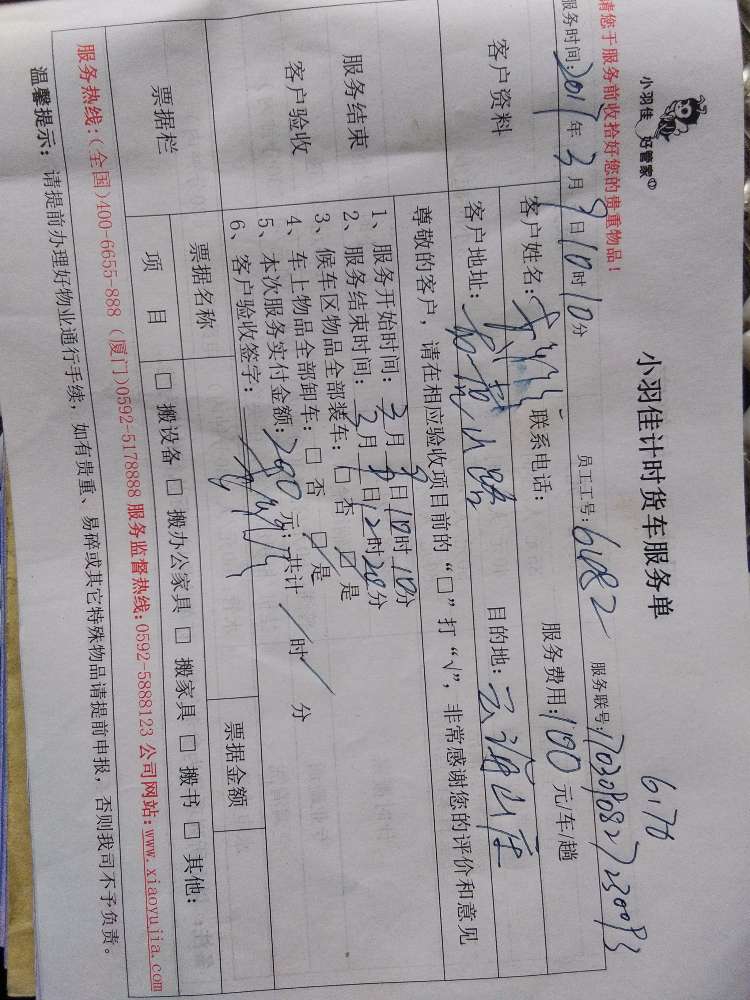 小羽佳 好管家
小羽佳计时货车服务单
6176
请您于服务前收拾好您的贵重物品！
服务时间：2017年3月9日10时10分 员工工号：6482 服务联号：
客户资料
客户姓名： 联系电话： 服务费用：100元/车/趟
客户地址： 目的地：云海山庄
尊敬的客户，请在相应验收项目前的“□”打“√”，非常感谢您的评价和意见
服务结束
客户验收
1、服务开始时间：3月9日10时10分
2、服务结束时间：3月9日12时20分
3、候车区物品全部装车：□否 ☑是
4、车上物品全部卸车：□否 ☑是
5、本次服务实付金额：290元；共计 / 时 / 分
6、客户验收签字：
票据栏
票据名称 票据金额
项目 □搬设备 □搬办公家具 □搬家具 □搬书 □其他：
服务热线：(全国)400-6655-888 (厦门)0592-5178888 服务监督热线：0592-5888123 公司网站：www.xiaoyujia.com
温馨提示：请提前办理好物业通行手续，如有贵重、易碎或其它特殊物品请提前申报，否则我司不予负责。